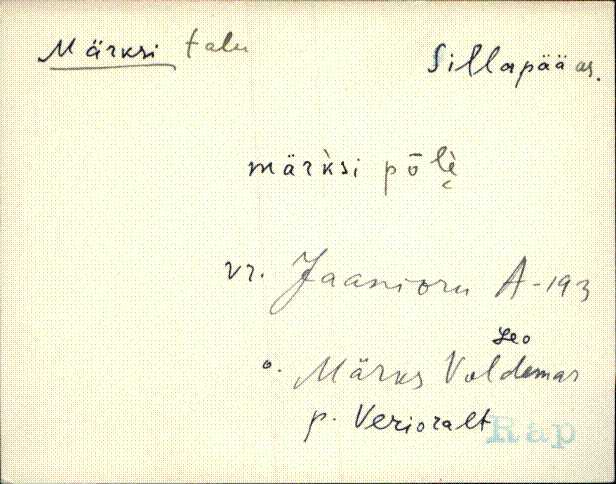 Märksi talu
Sillapää as.
märk̀si põlè̬
vr. Jaanioru A-193
Leo
o. Märks Voldemar
p. Verioralt
Rap